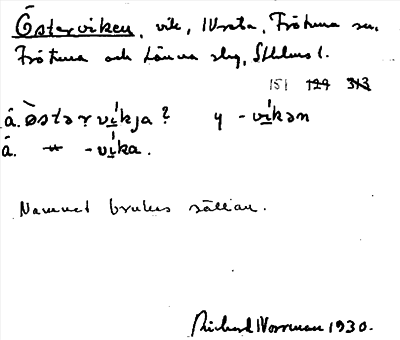 Österviken, vik, Wreta, Frötuna sn,
Frötuna och Länna slg, Sthlms l.
151 124 313
å. òstər víkja? y -víkən
å. " -víka.
Namnet brukas sällan.
Richard Norrman 1930.